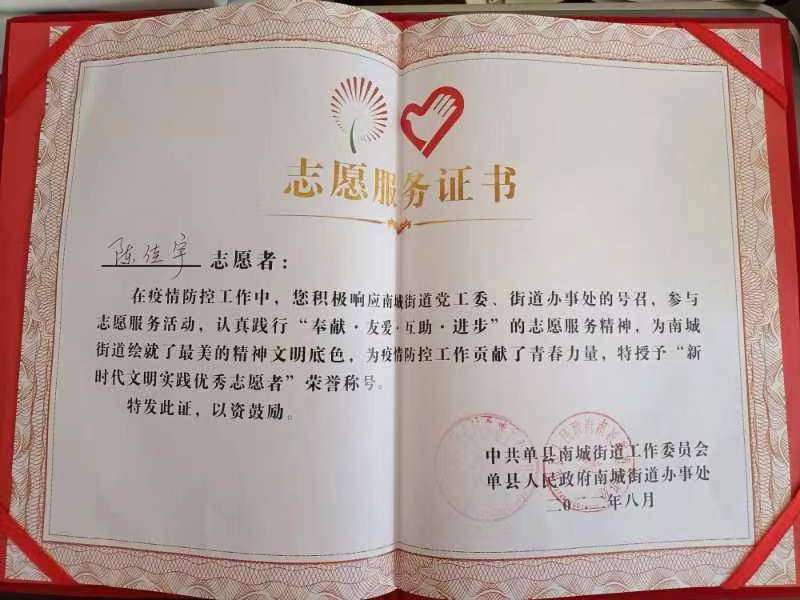 志愿服务证书
陈佳宇 志愿者：
在疫情防控工作中，您积极响应南城街道党工委、街道办事处的号召，参与
志愿服务活动，认真践行“奉献·友爱·互助·进步”的志愿服务精神，为南城
街道绘就了最美的精神文明底色，为疫情防控工作贡献了青春力量，特授予“新
时代文明实践优秀志愿者”荣誉称号。
特发此证，以资鼓励。
中共单县南城街道工作委员会
单县人民政府南城街道办事处
二〇二二年八月